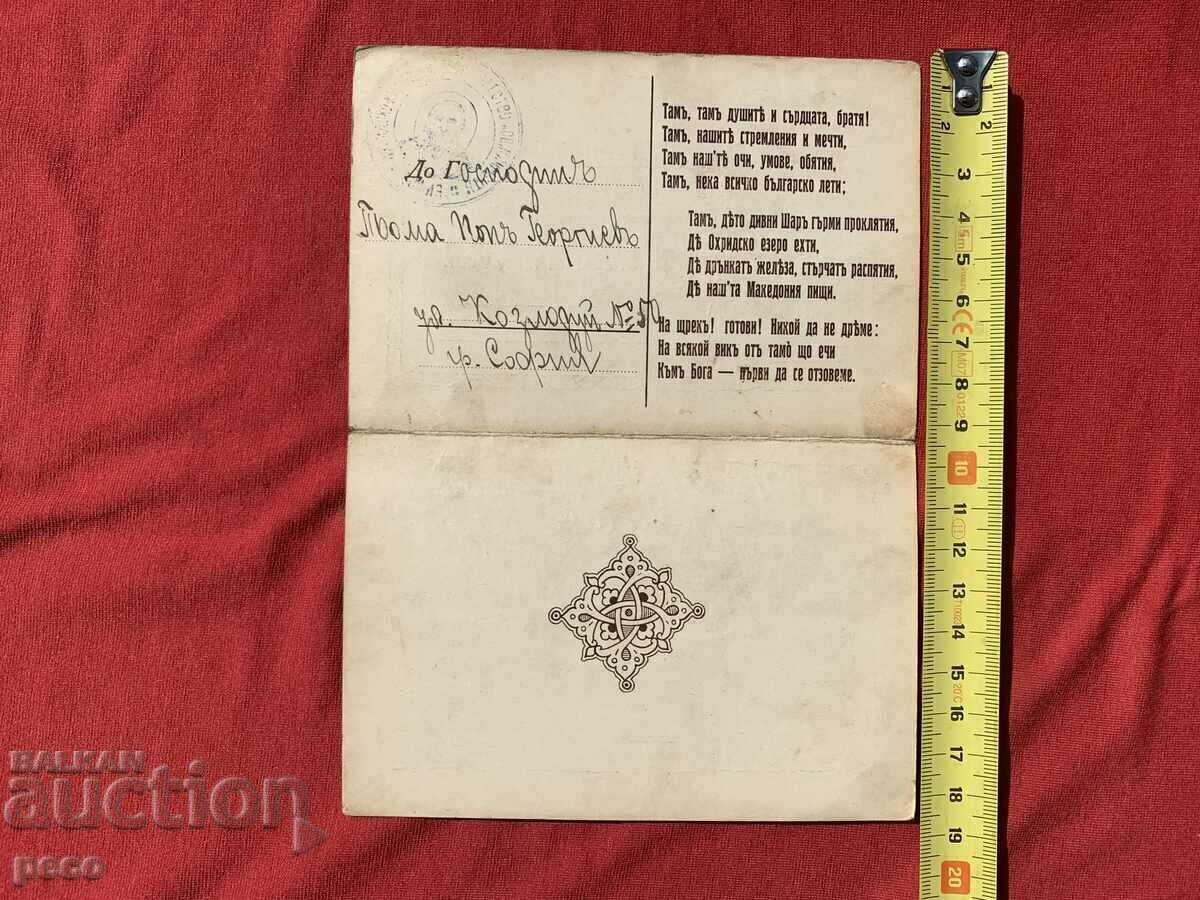 До Господинъ
Тома Попъ Георгиевъ
ул. Козлодуй № 50
гр. София
Тамъ, тамъ душитѣ и сърдцата, братя!
Тамъ, нашитѣ стремления и мечти,
Тамъ наш'тѣ очи, умове, обятия,
Тамъ, нека всичко българско лети;
Тамъ, дѣто дивни Шаръ гърми проклятия,
Дѣ Охридско езеро ехти,
Дѣ дрънкатъ желѣза, стърчатъ распятия,
Дѣ наш'та Македония пищи.
На щрекъ! готови! Никой да не дрѣме:
На всякой викъ отъ тамо̀ що ечи
Къмъ Бога — първи да се отзовеме.
BALKAN
auction
peco
2 2
3
4
5m
5
6
CE
7
M07
8
0122
9
10
11
12
13
14
15
20°C
16
17
18
19
20